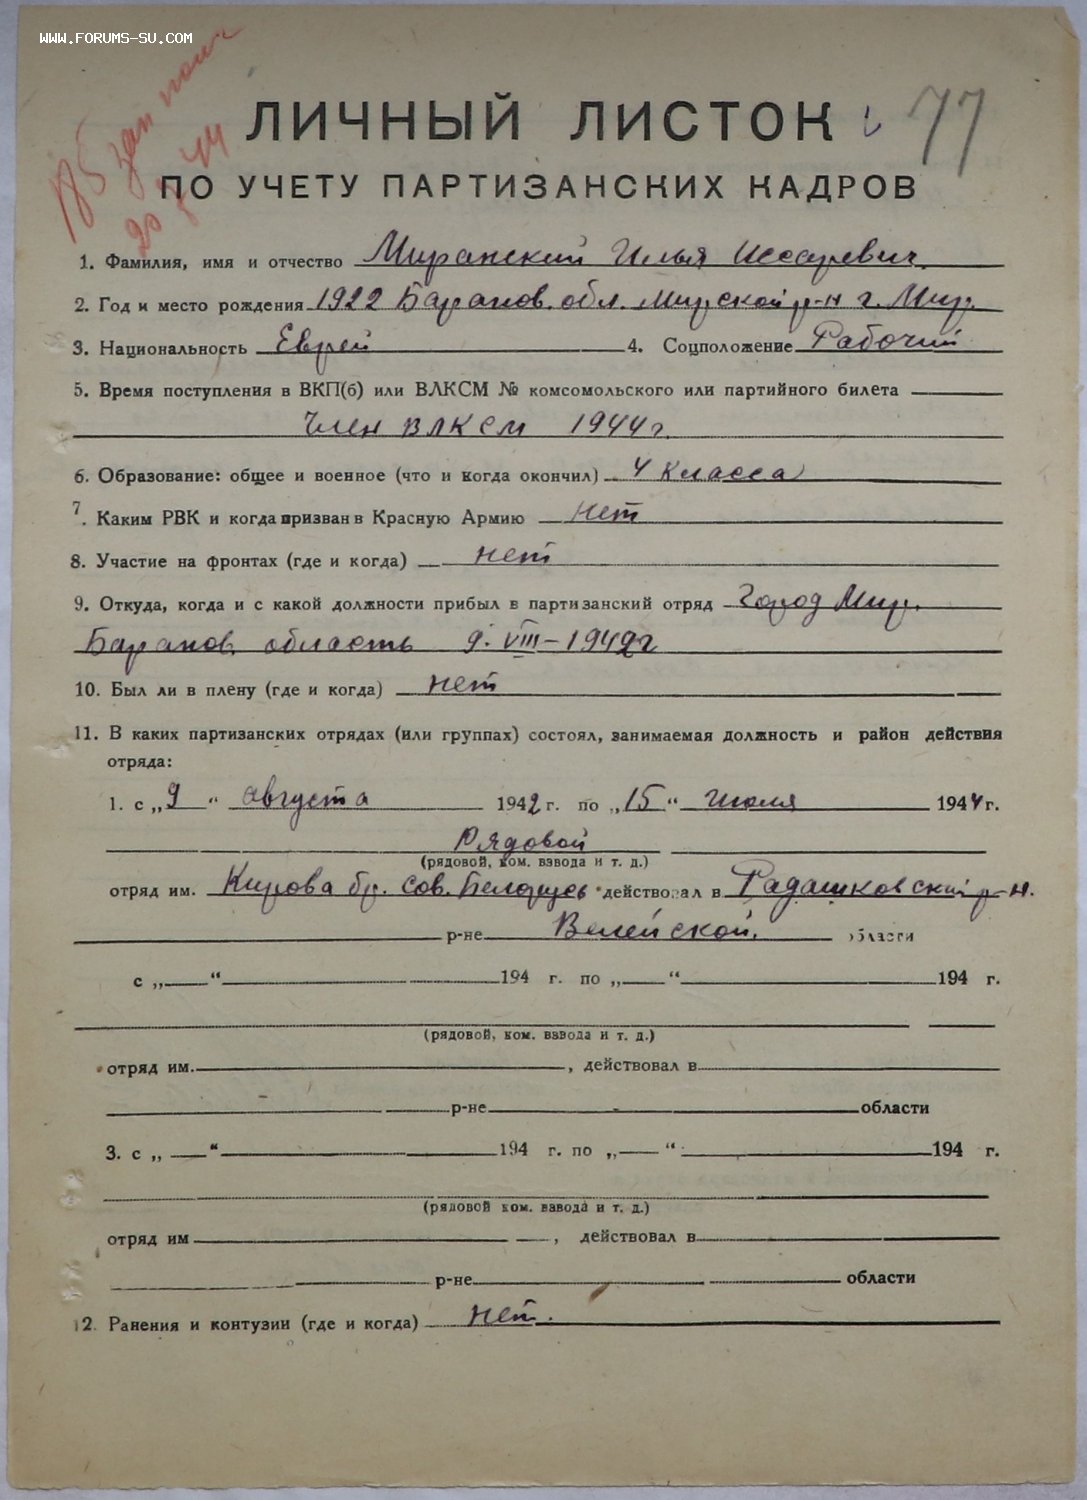 WWW.FORUMS-SU.COM
77
20
ЛИЧНЫЙ ЛИСТОК
ПО УЧЕТУ ПАРТИЗАНСКИХ КАДРОВ
1. Фамилия, имя и отчество Миранский Илья Иссаревич.
2. Год и место рождения 1922 Баранов. обл. Мирской р-н г. Мир.
3. Национальность Еврей 4. Соцположение Рабочий
5. Время поступления в ВКП(б) или ВЛКСМ № комсомольского или партийного билета
Член ВЛКСМ 1944 г.
6. Образование: общее и военное (что и когда окончил) 4 класса
7. Каким РВК и когда призван в Красную Армию нет
8. Участие на фронтах (где и когда) нет
9. Откуда, когда и с какой должности прибыл в партизанский отряд Город Мир.
Баранов. область 9. VIII-1942г
10. Был ли в плену (где и когда) нет
11. В каких партизанских отрядах (или группах) состоял, занимаемая должность и район действия
отряда:
1. с „9“ августа 1942 г. по „15“ июля 1944 г.
Рядовой
(рядовой, ком. взвода и т. д.)
отряд им. Кирова бр. Сов. Белорусь действовал в Радашковский р-н.
р-не Велейской. области
с „ “ 194 г. по „ “ 194 г.
(рядовой, ком. взвода и т. д.)
отряд им. , действовал в
р-не области
3. с „ “ 194 г. по „ “ 194 г.
(рядовой ком. взвода и т. д.)
отряд им , действовал в
р-не области
12. Ранения и контузии (где и когда) нет.